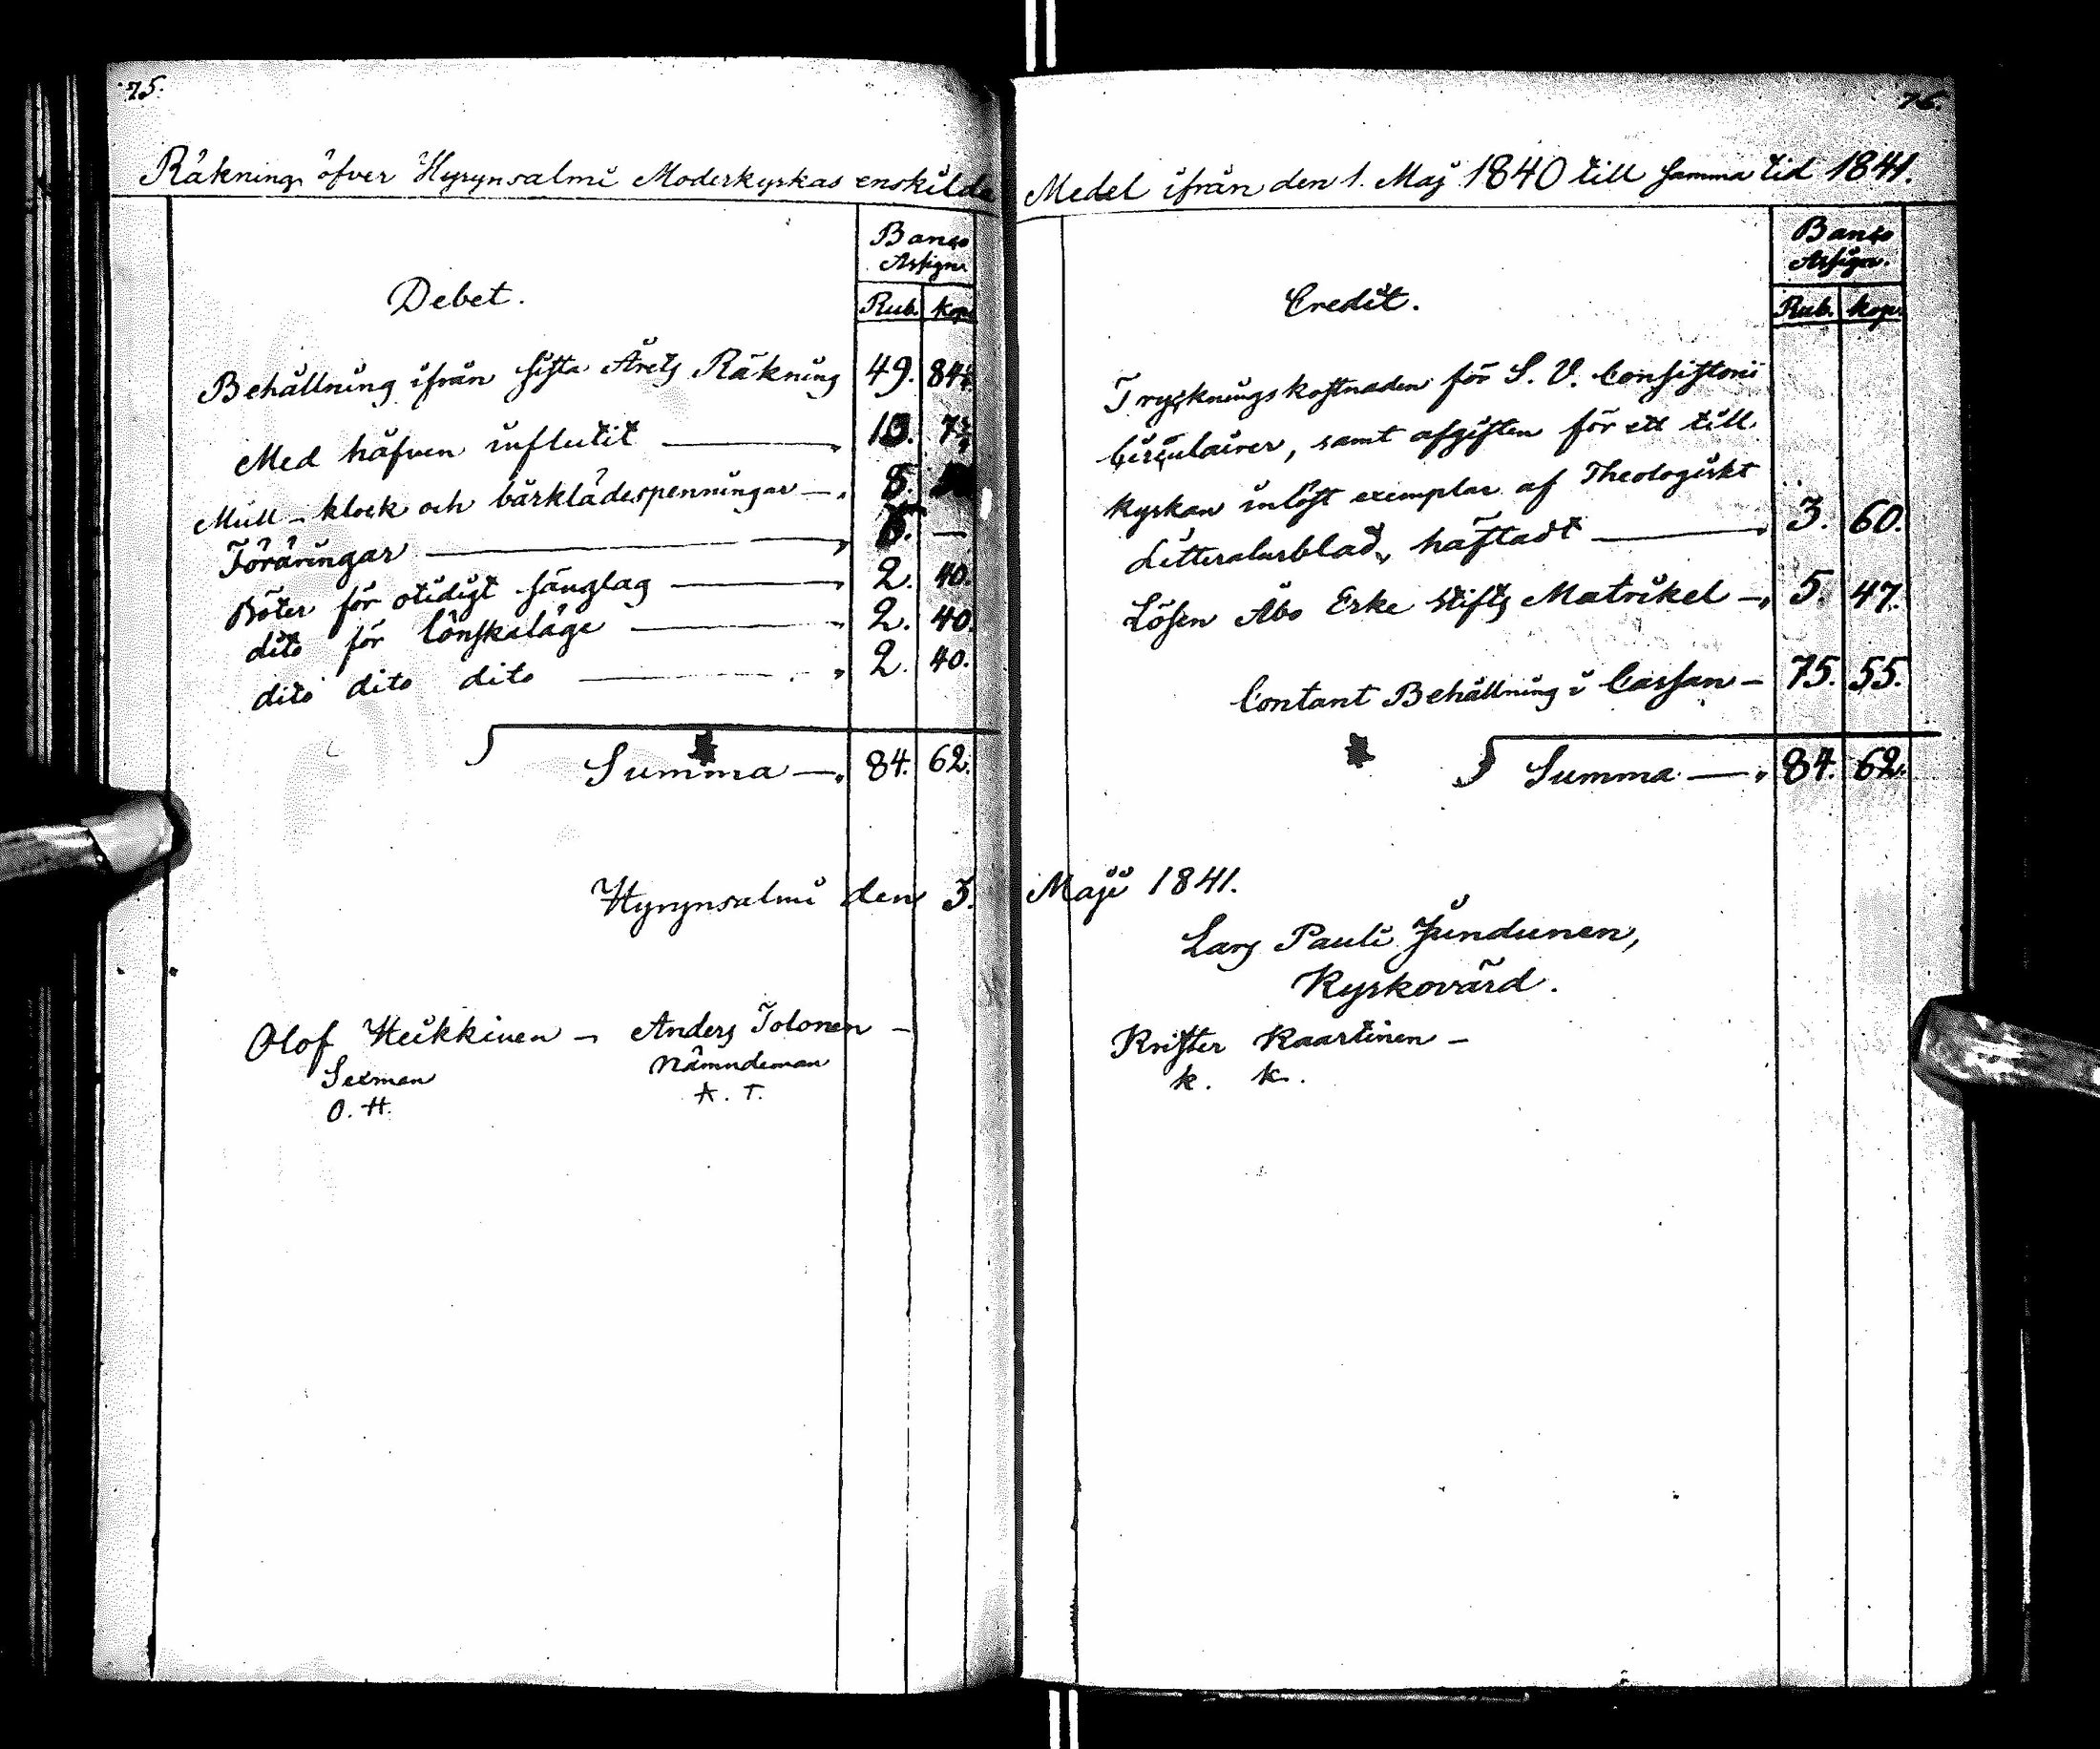 75.
Räkning öfver Hyrynsalmi Moderkyrkas enskilda
Banco
Assign.
Debet.
Rub. kop.
Behållning ifrån sista Årets Räkning 49. 84
Med håfven influtit — 10. 7
Mull- klock och bårklädespenningar — 8.
Föräringar — —
Böter för otidigt sänglag — 2. 40.
dito för lönskaläge — 2. 40.
dito dito dito — 2. 40.
Summa — 84. 62.
Hyrynsalmi den 3.
Olof Heikkinen — Anders Tolonen —
Sexman Nämndeman
O. H. A. T.
76.
Medel ifrån den 1. Maj 1840 till samma tid 1841.
Banco
Assign.
Credit.
Rub. kop.
Tryckningskostnaden för S. V. Consistorii
Circulairer, samt afgiften för ett till
kyrkan inlöst exemplar af Theologiskt
Litteraturblad, häftadt — 3. 60.
Lösen Åbo Erke Stifts Matrikel — 5. 47.
Contant Behållning i Cassan — 75. 55.
Summa — 84. 62.
Maji 1841.
Lars Pauli Jundunen,
Kyrkovärd.
Krister Kaartinen —
k. k.